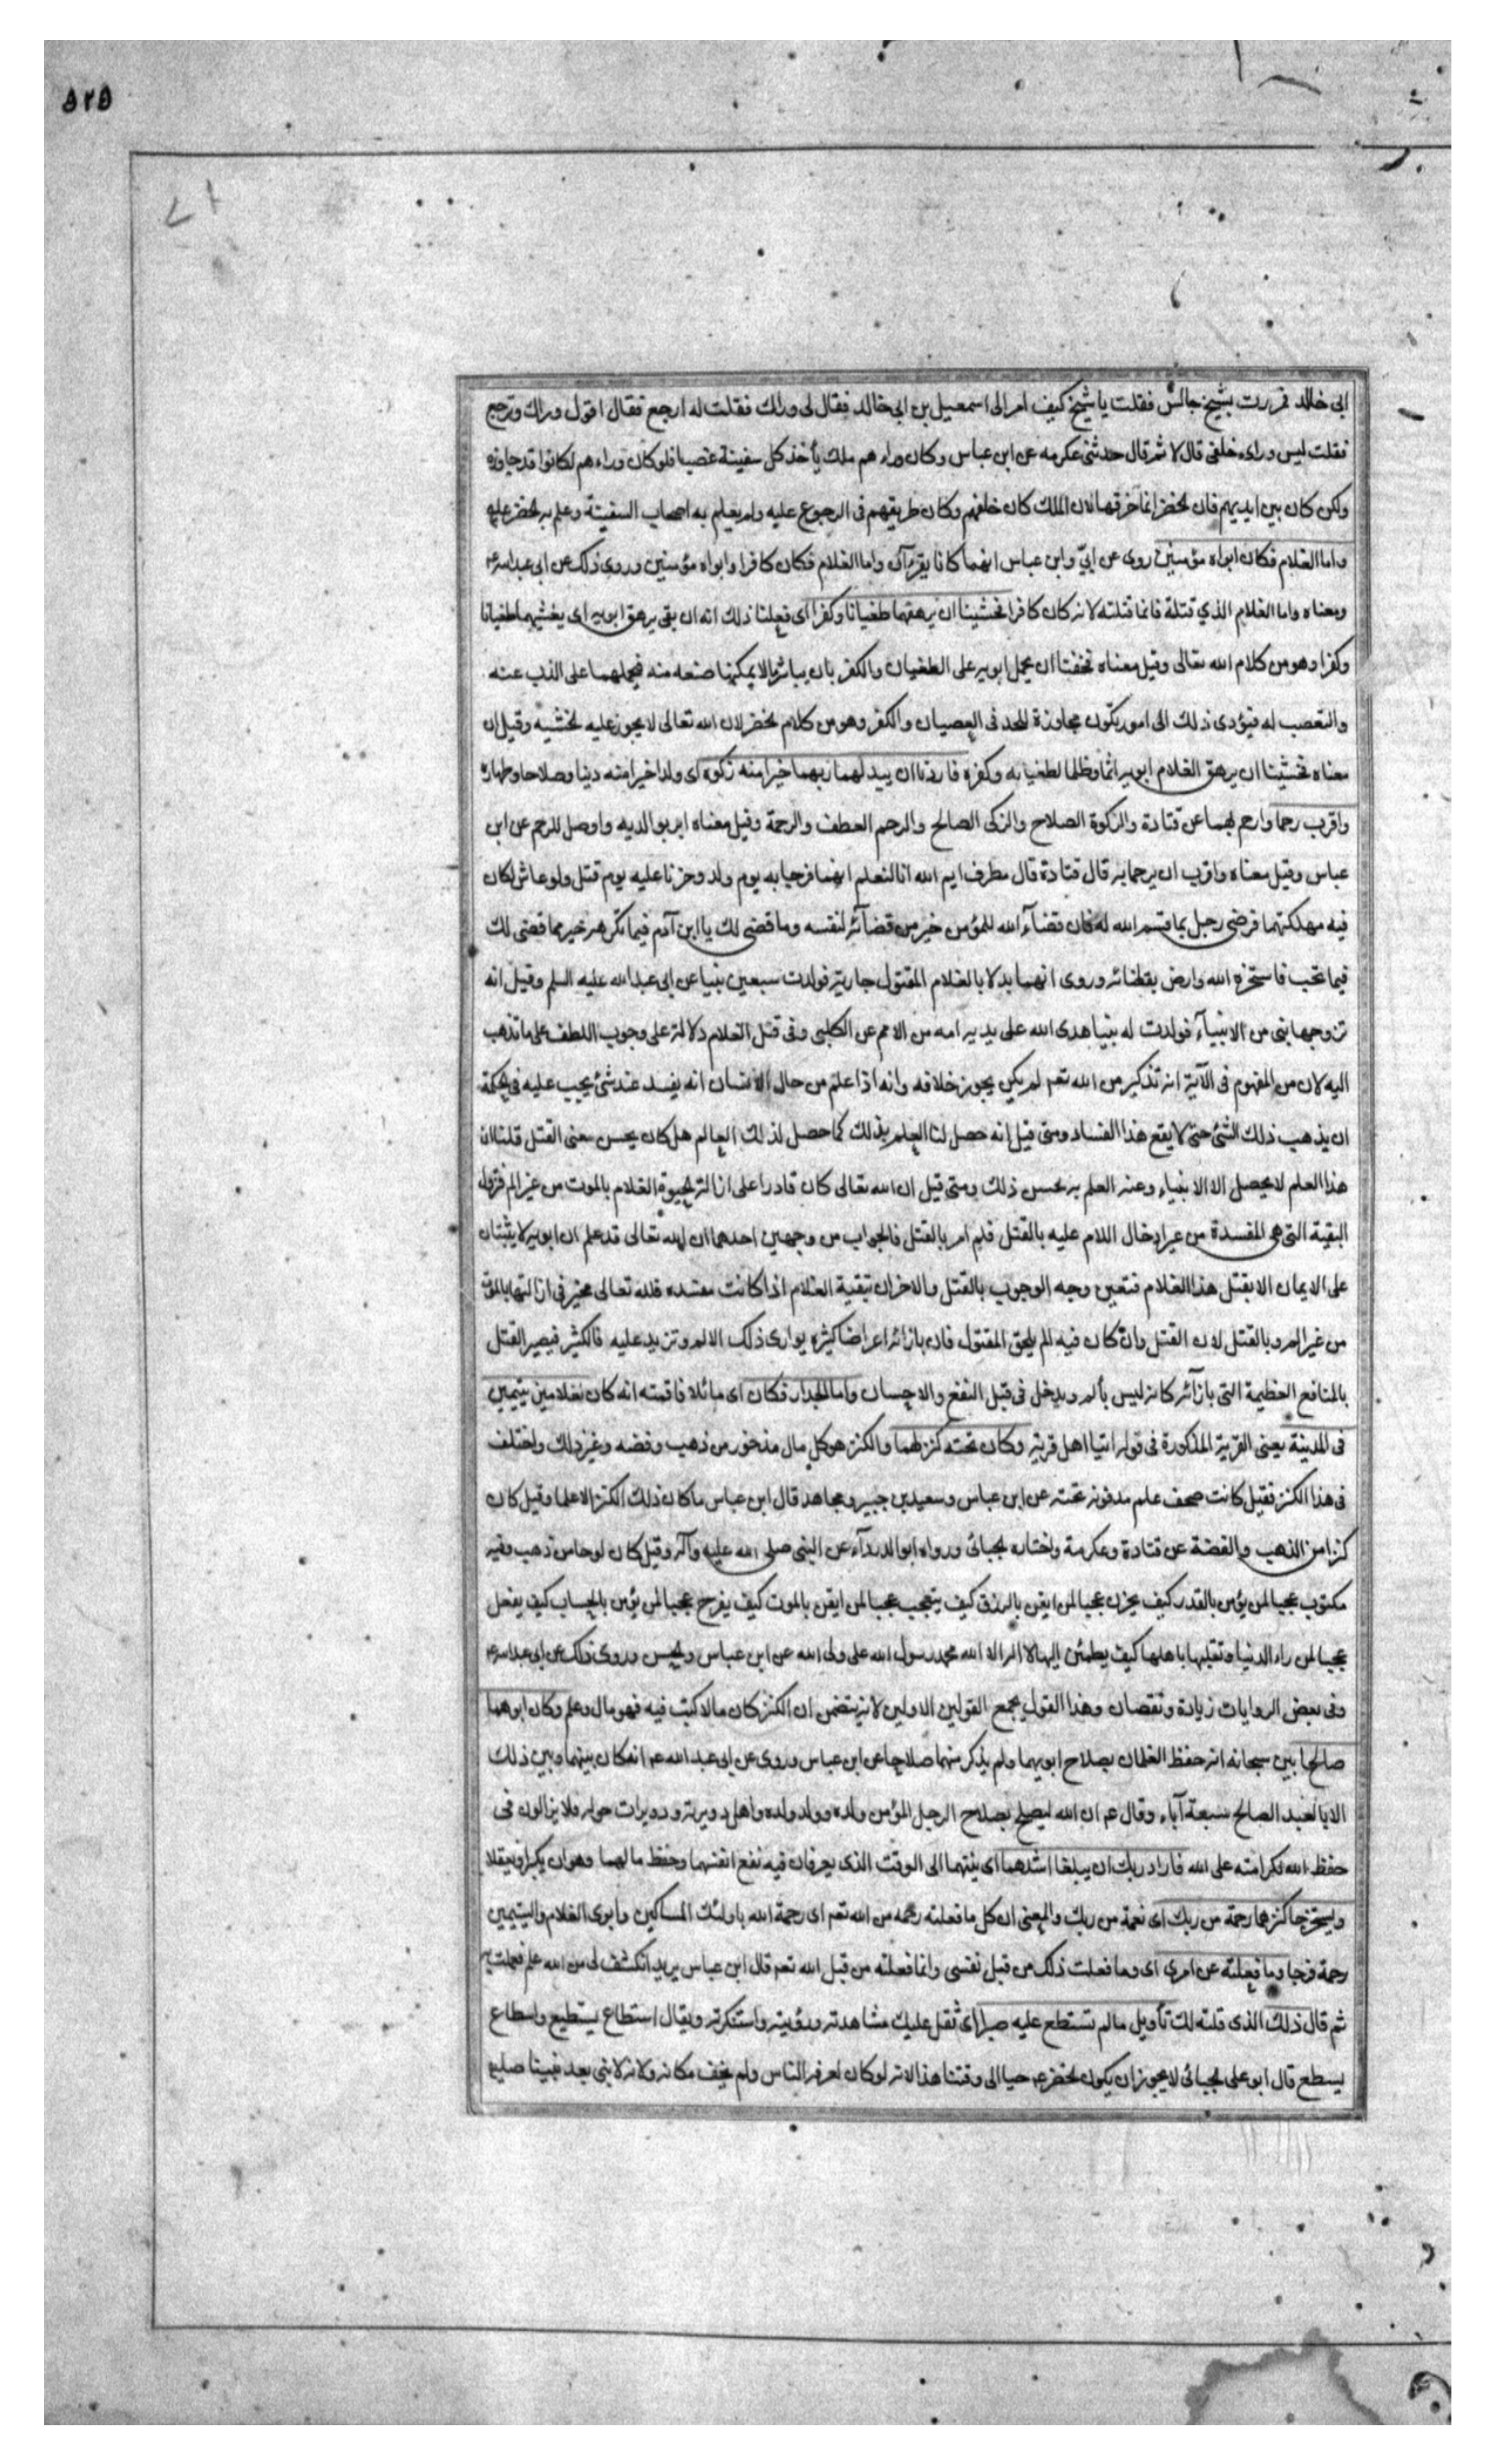 ٥٢٥
ابى خالد فمررت بشيخ جالس فقلت يا شيخ كيف امر الى اسمعيل بن ابى خالد فقال لى وراك فقلت له ارجع فقال اقول وراك وترجع
فقلت ليس وراء خلفى قال لا ثم قال حدثنى عكرمه عن ابن عباس وكان وراء هم ملك يأخذ كل سفينة غصبا فلو كان وراء هم لكانوا قد جاوزه
ولكن كان بين ايديهم فان لخضر انما خرقها لان الملك كان خلفهم وكان طريقهم فى الرجوع عليه ولم يعلم به اصحاب السفينة وعلم به لخضر عليه
واما الغلام فكان ابواه مؤمنين روى عن ابىّ وابن عباس انهما كانا يقرءآن واما الغلام فكان كافرا وابواه مؤمنين وروى ذلك عن ابى عبدالله ع
ومعناه واما الغلام الذي قتلة فانما قتلته لانه كان كافرا فخشينا ان يرهقهما طغيانا وكفرا اى فعلنا ذلك انه ان بقى يرهق ابويه اى يغشيهما طغيانا
وكفرا وهو من كلام الله تعالى وقيل معناه فخفنا ان يحمل ابويه على الطغيان والكفر بان يباشر ما لا يمكنهما صنعه منه فيحملهما على الذب عنه
والتعصب له فيؤدى ذلك الى امور يكون مجاوزة للحد فى العصيان والكفر وهو من كلام لخضر لان الله تعالى لا يجوز عليه لخشيه وقيل ان
معناه فخشينا ان يرهق الغلام ابويه اثما وظلما لطغيانه وكفره فاردنا ان يبدلهما ربهما خيرا منه زكوة اى ولدا خيرا منه دينا وصلاحا وطهارة
واقرب رحما وارحم لهما عن قتادة والزكوة الصلاح والزكى الصالح والرحم العطف والرحمة وقيل معناه ابر بوالديه واوصل للرحم عن ابن
عباس وقيل معناه واقرب ان يرحما به قال قتادة قال مطرف ايم الله انا لنعلم انهما فرحا به يوم ولد وحزنا عليه يوم قتل ولو عاش لكان
فيه مهلكتهما فرضى رجل بما قسم الله له فان قضآء الله للمؤمن خير من قضآئه لنفسه وما قضى لك يا ابن آدم فيما تكره خير مما قضى لك
فيما تحب فاستخره الله وارض بقضائه وروى انهما بدلا بالغلام المقتول جارية فولدت سبعين نبيا عن ابى عبد الله عليه السلم وقيل انه
تزوجها نبى من الانبيآء فولدت له نبيا هدى الله على يديه امه من الامم عن الكلبى وفى قتل الغلام دلالة على وجوب اللطف على ما نذهب
اليه لان من المفهوم فى الآية انه تذكير من الله تعه لم يكن يجوز خلافه وانه اذا علم من حال الانسان انه يفسد عند شئ يجب عليه فى لحكمة
ان يذهب ذلك الشئ حتى لا يقع هذا الفساد ومتى قيل انه حصل لنا العلم بذلك كما حصل لذلك العالم هل كان يحسن معنى القتل قلنا ان
هذا العلم لا يحصل الا الانبياء وعند العلم به يحسن ذلك ومتى قيل ان الله تعالى كان قادرا على ازالة لحيوة الغلام بالموت من غير الم فتزول
البقية التى هى المفسدة من غير ادخال اللام عليه بالقتل فلم امر بالقتل فالجواب من وجهين احدهما ان الله تعالى قد علم ان ابويه لا يثبتان
على الايمان الا بقتل هذا الغلام فتعين وجه الوجوب بالقتل والاخر ان تبقية الغلام اذا كانت مفسده فلله تعالى مخير فى ازالتها بالموت
من غير الم وبالقتل لان القتل وان كان فيه الم يلحق المقتول فان بازائه اعراضا كثيره يوازى ذلك الالم وتزيد عليه فالكثير فيصير القتل
بالمنافع العظيمة التى بازآئه كانه ليس بألم ويدخل فى قبل النفع والاحسان واما الجدار فكان اى مائلا فاقمته انه كان لغلامين يتيمين
فى المدينة يعنى القرية المذكورة فى قوله اتيا اهل قرية وكان تحته كنز لهما والكنز هو كل مال مذخور من ذهب وفضه وغير ذلك واختلف
فى هذا الكنز فقيل كانت صحف علم مدفونه تحته عن ابن عباس وسعيد بن جبير ومجاهد قال ابن عباس ما كان ذلك الكنز الا علما وقيل كان
كنزا من الذهب والفضة عن قتادة وعكرمة واختاره لجبائى ورواه ابو الدردآء عن النبى صلى الله عليه وآله وقيل كان لوحا من ذهب وفيه
مكتوب عجبا لمن يؤمن بالقدر كيف يحزن عجبا لمن ايقن بالرزق كيف يتعجب عجبا لمن ايقن بالموت كيف يفرح عجبا لمن يؤمن بالحساب كيف يغفل
عجبا لمن راء الدنيا وتقلبها باهلها كيف يطمئن اليها لا اله الا الله محمد رسول الله على ولى الله عن ابن عباس ولحسن وروى ذلك عن ابى عبدالله ع
وفى بعض الروايات زيادة ونقصان وهذا القول يجمع القولين الاولين لانه يتضمن ان الكنز كان مالا كتب فيه فهو مال وعلم وكان ابوهما
صالحا بين سبحانه انه حفظ الغلمان بصلاح ابويهما ولم يذكر منهما صلاحا عن ابن عباس وروى عن ابى عبد الله ع انه كان بينهما وبين ذلك
الاب العبد الصالح سبعة آباء وقال ع ان الله ليصلح بصلاح الرجل المؤمن ولده وولد ولده واهل دويرته ودويرات حوله فلا يزالون فى
حفظ الله لكرامته على الله فاراد ربك ان يبلغا اشدهما اى ينتهما الى الوقت الذى يعرفان فيه نفع انفسهما وحفظ مالهما وهو ان يكبرا ويعقلا
ويستخرجا كنزهما رحمة من ربك اى نعمة من ربك والمعنى ان كل ما فعلته رحمه من الله تعه اى رحمة الله باولئك المساكين وابوى الغلام واليتيمين
رحمة فرجا وما فعلته عن امرى اى وما فعلت ذلك من قبل نفسى وانما فعلته من قبل الله تعه قال ابن عباس يريد انكشف لى من الله علم فعملت به
ثم قال ذلك الذى قلته لك تأويل مالم تستطع عليه صبرا اى ثقل عليك مشاهدته ورؤيته واستنكرته ويقال استطاع يستطيع واسطاع
يسطع قال ابو على لجبائى لا يجوز ان يكون لخضر ع حيا الى وقتنا هذا لانه لو كان لعرفه الناس ولم يخف مكانه ولانه لا نبى بعد نبينا صليم